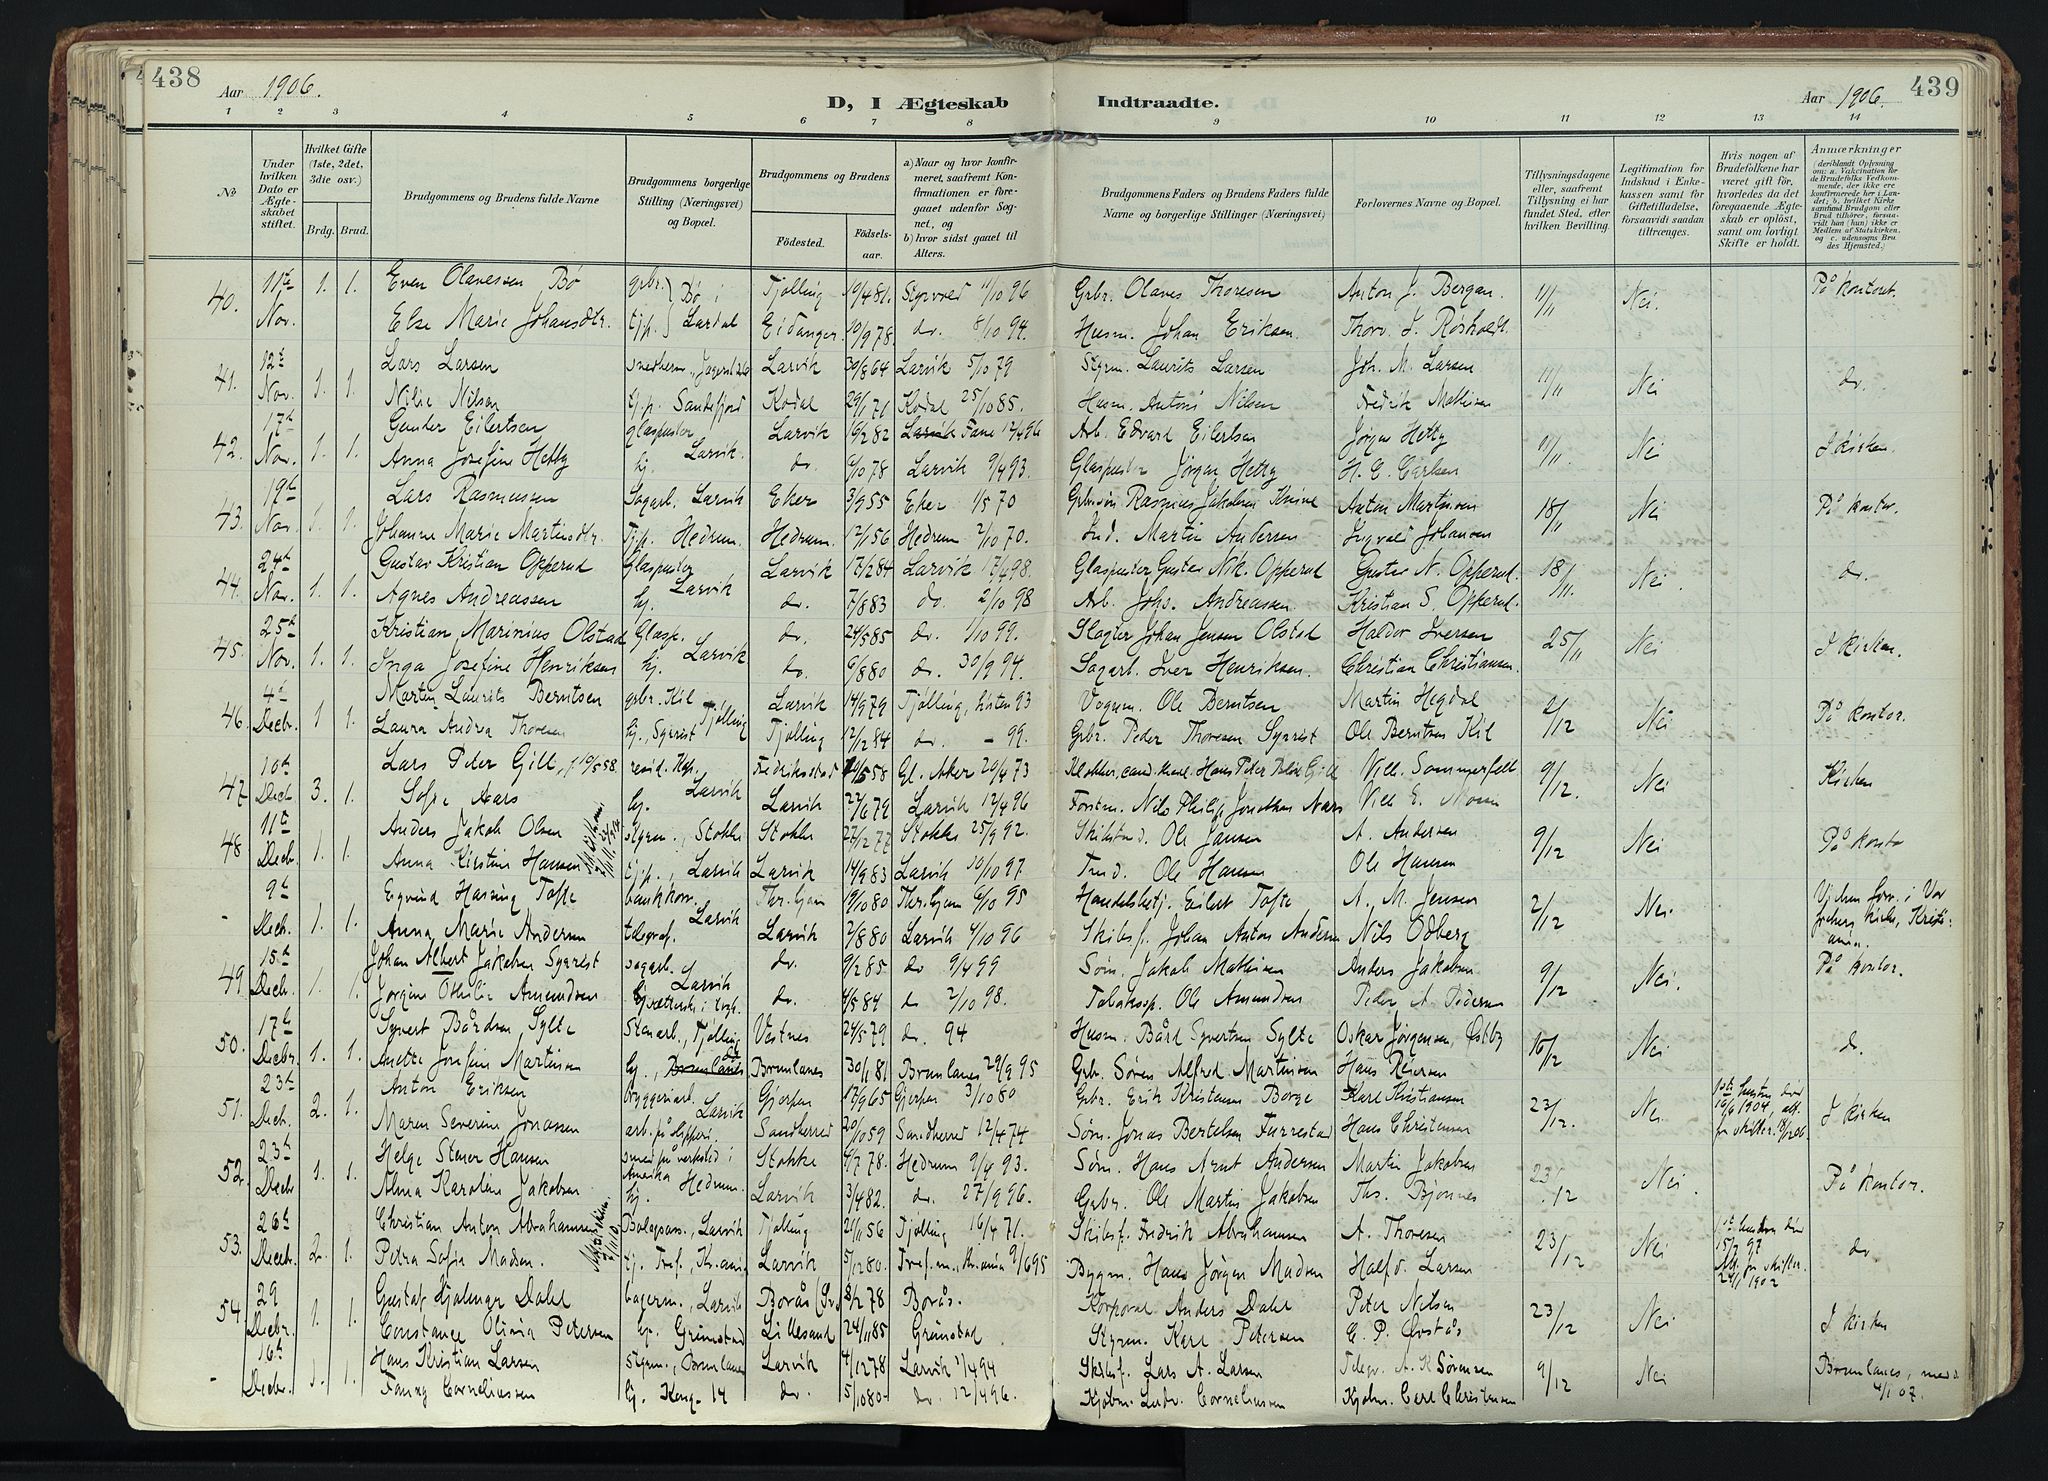 438
Aar 1906.
D, I Ægteskab
Indtraadte.
Aar 1906.
439
1 2 3 4 5 6 7 8 9 10 11 12 13 14
№
Under hvilken Dato er Ægteskabet stiftet.
Hvilket Gifte (1ste, 2det, 3die osv.)
Brdg. Brud.
Brudgommens og Brudens fulde Navne
Brudgommens borgerlige Stilling (Næringsvei) og Bopæl.
Brudgommens og Brudens
Födested.
Födselsaar.
a) Naar og hvor konfirmeret, saafremt Konfirmationen er foregaaet udenfor Sognet, og
b) hvor sidst gaaet til Alters.
Brudgommens Faders og Brudens Faders fulde Navne og borgerlige Stillinger (Næringsvei)
Forlovernes Navne og Bopæl.
Tillysningsdagene eller, saafremt Tillysning ei har fundet Sted, efter hvilken Bevilling.
Legitimation for Indskud i Enkekassen samt for Giftetilladelse, forsaavidt saadan tiltrænges.
Hvis nogen af Brudefolkene har været gift för, hvorledes da det foregaaende Ægteskab er oplöst, samt om lovligt Skifte er holdt.
Anmærkninger
(deriblandt Oplysning om: a. Vakcination for de Brudefolks Vedkommende, der ikke ere konfirmerede her i Landet; b. hvilket Kirkesamfund Brudgom eller Brud tilhører, forsaavidt han (hun) ikke er Medlem af Statskirken, og c. udensogns Brudes Hjemsted.)
40. 11te Nov. 1. 1. Even Olavessen Bø gbr. Bø i Tjølling 19/4 81. Styrvold 11/10 96 Gbr. Olaves Thoresen Anton J. Bergan. 11/11 Nei. På kontoret.
Else Marie Johansdtr. tjp. Lardal Eidanger 10/9 78. do. 8/10 94. Husm. Johan Eriksen Thorv. J. Røsholdt.
41. 12te Nov. 1. 1. Lars Larsen Larvik 30/8 64 Larvik 5/10 79 Styrm. Laurits Larsen Joh. M. Larsen 11/11 Nei do.
Nilie Nilsen tj.p. Sandefjord Kodal 29/1 71 Kodal 25/10 85. Husm. Antoni Nilsen Fredrik Mathisen
42. 17de Nov. 1. 1. Gunder Eilertsen glaspuster Larvik. Larvik 16/2 82 Larvik Fane 12/4 96 Arb. Edvard Eilertsen Jörgen Hetty 11/11. Nei I kirken.
Anna Josefine Hetty hj. do. 9/10 78 Larvik 9/4 93. Glaspuster Jörgen Hetty H. C. Carlsen
43. 19de Nov. 1. 1. Lars Rasmussen Sagarb. Larvik Eker 3/9 55 Eker 1/5 70 Rasmus Jakobsen Anton Martinsen 18/11 Nei På kontor.
Johanne Marie Martinsdtr. Tjp. Hedrum. Hedrum. 12/1 56 Hedrum 2/10 70. Ind. Martin Andersen Ingvald Johansen
44. 24de Nov. 1. 1. Gustav Kristian Opperud Glaspuster Larvik Larvik 17/2 84 Larvik 17/4 98. Glaspuster Gustav Nik. Opperud Gustav N. Opperud. 18/11. Nei do.
Agnes Andreassen hj. do. 7/8 83 do. 2/10 98 Arb. Johs. Andreassen. Kristian S. Opperud.
45. 25de Nov. 1. 1. Kristian Marinius Olstad Glasp. Larvik do. 24/5 85 do. 1/10 99. Slagter Johan Jensen Olstad Haldor Iversen 25/11 Nei I kirken.
Inga Josefine Henriksen hj. do. 6/8 80 do. 30/9 94. Sagarb. Iver Henriksen. Christian Christiansen.
46. 4de Decbr. 1 1. Martin Laurits Berntsen gbr. Kil Tjølling Larvik 14/9 79 Tjølling, hösten 93 Vognm. Ole Berntsen Martin Hegdal 2/12 Nei På kontor.
Laura Andrea Thoresen hj., Syrrist Tjølling 12/12 84 do. – 99. Gbr. Peder Thoresen Syrrist Ole Berntsen Kil
47 10de Decb. 3. 1. Lars Peter Gill, f 19/5 58. Larvik Fredriksstad 19/5 58 Gl. Aker 20/4 73 Klokker, cand. theol. Hans Peter Gill Vilh. Sommerfelt 9/12. Nei Kirken
Sofie Aars hj. Larvik 22/6 79 Larvik 12/4 96 Forstm. Nils Philip Jonathan Aars Vilh. E. Moam
48 11te Decb. 1. 1. Anders Jakob Olsen styrm., Stokke Stokke 27/12 77 Stokke 25/9 92. Ole Jansen A. Andersen 9/12 Nei På kontor
Anna Kirstine Hansen tjp., Larvik Larvik 14/9 83 Larvik 10/10 97 Ole Hansen Ole Hansen
- 9de Decb. 1. 1. Eyvind Harring Tofte bankkorr. Larvik Thr.hjem 19/10 80 Thr.hjem 6/10 95 Handelsbetj. Eilert Tofte A. M. Jensen 2/12 Nei. Vor frelsers kirke, Kristiania.
Anna Marie Andersen telegraf. Larvik 2/8 80 Larvik 4/10 96 Skibsf. Johan Anton Andersen Nils Odberg
49 15de Decb. 1. 1. Johan Albert Jakobsen Syrrist sagarb. Larvik do. 9/2 85 do 9/4 99 Søm. Jakob Mathisen Anders Jakobsen 9/12 Nei. På kontor.
Jørgine Othilie Amundsen do. 4/5 84 do 2/10 98. Tobakssp. Ole Amundsen Peder A. Pedersen
50. 17de Decbr. 1. 1. Syvert Bårdsen Sylte Stenarb., Tjølling Vestnes 24/5 79 do. 94 Husm. Bård Syvertsen Sylte Oskar Jørgensen, Østby 16/12 Nei do.
Anette Josefine Martinsen hj., Brunlanes Brunlanes 30/1 81 Brunlanes 29/9 95 Gbr. Søren Alfred Martinsen Hans Reiersen
51. 23de Decb. 2. 1. Anton Eriksen bryggeriarb. Larvik Gjerpen 17/9 65 Gjerpen 3/10 80 Gbr. Erik Kristensen Borge Karl Kristiansen 23/12. Nei 1ste hustru död 16/6 1904, att. fra skifter. I kirken
Maren Severine Jonassen arb. på slipperi. Sandherred 20/10 59 Sandherred 12/4 74 Søm. Jonas Bertelsen Furrestad Hans Christensen
52. 23de Decbr 1. 1. Helge Stener Hansen smed på verksted i Amerika Stokke 4/7 78. Hedrum 9/4 93. Søm. Hans Arnt Andersen Martin Jakobsen 23/12 Nei. På kontor.
Alma Karoline Jakobsen hj. Hedrum. Larvik 3/4 82. do. 27/9 96. Gbr. Ole Martin Jakobsen Ths. Bjønnes
53. 26de Decbr. 2. 1. Christian Anton Abrahamsen Larvik Tjølling 21/11 56 Tjølling 16/4 71. Skibsf. Fredrik Abrahamsen A. Thoresen 23/12 Nei 1ste hustru död 15/7 97 Att. fra skifter. 24/1 1902 do
Petra Sofie Madsen. tj. Tref., Kr.ania Larvik 5/12 80. Tref.m., Kr.ania 9/6 95 Bygm. Hans Jørgen Madsen Halfd. Larsen
54 29 Decbr. 1. 1. Gustaf Hjalmar Dahl bagerm., Larvik Borås (Sv.) 8/12 78 Borås. Korporal Anders Dahl Peter Nilsen 23/12 Nei I kirken
Constance Olivia Petersen hj. Grimstad Lillesand 24/11 85 Grimstad Styrm. Karl Petersen C. P. Ørstås
- 16de Decbr. 1. 1. Hans Kristian Larsen styrm., Brunlanes Larvik 4/12 78 Larvik 1/4 94 Skibsf. Lars A. Larsen Telegr. A. K Sørensen 9/12 Nei Brunlanes, 4/1 07.
Fanny Corneliussen hj. Kong. 14 do. 5/10 80 do. 12/4 96. Kjøbm. Ludv. Corneliussen Kjøbm. Carl Christensen